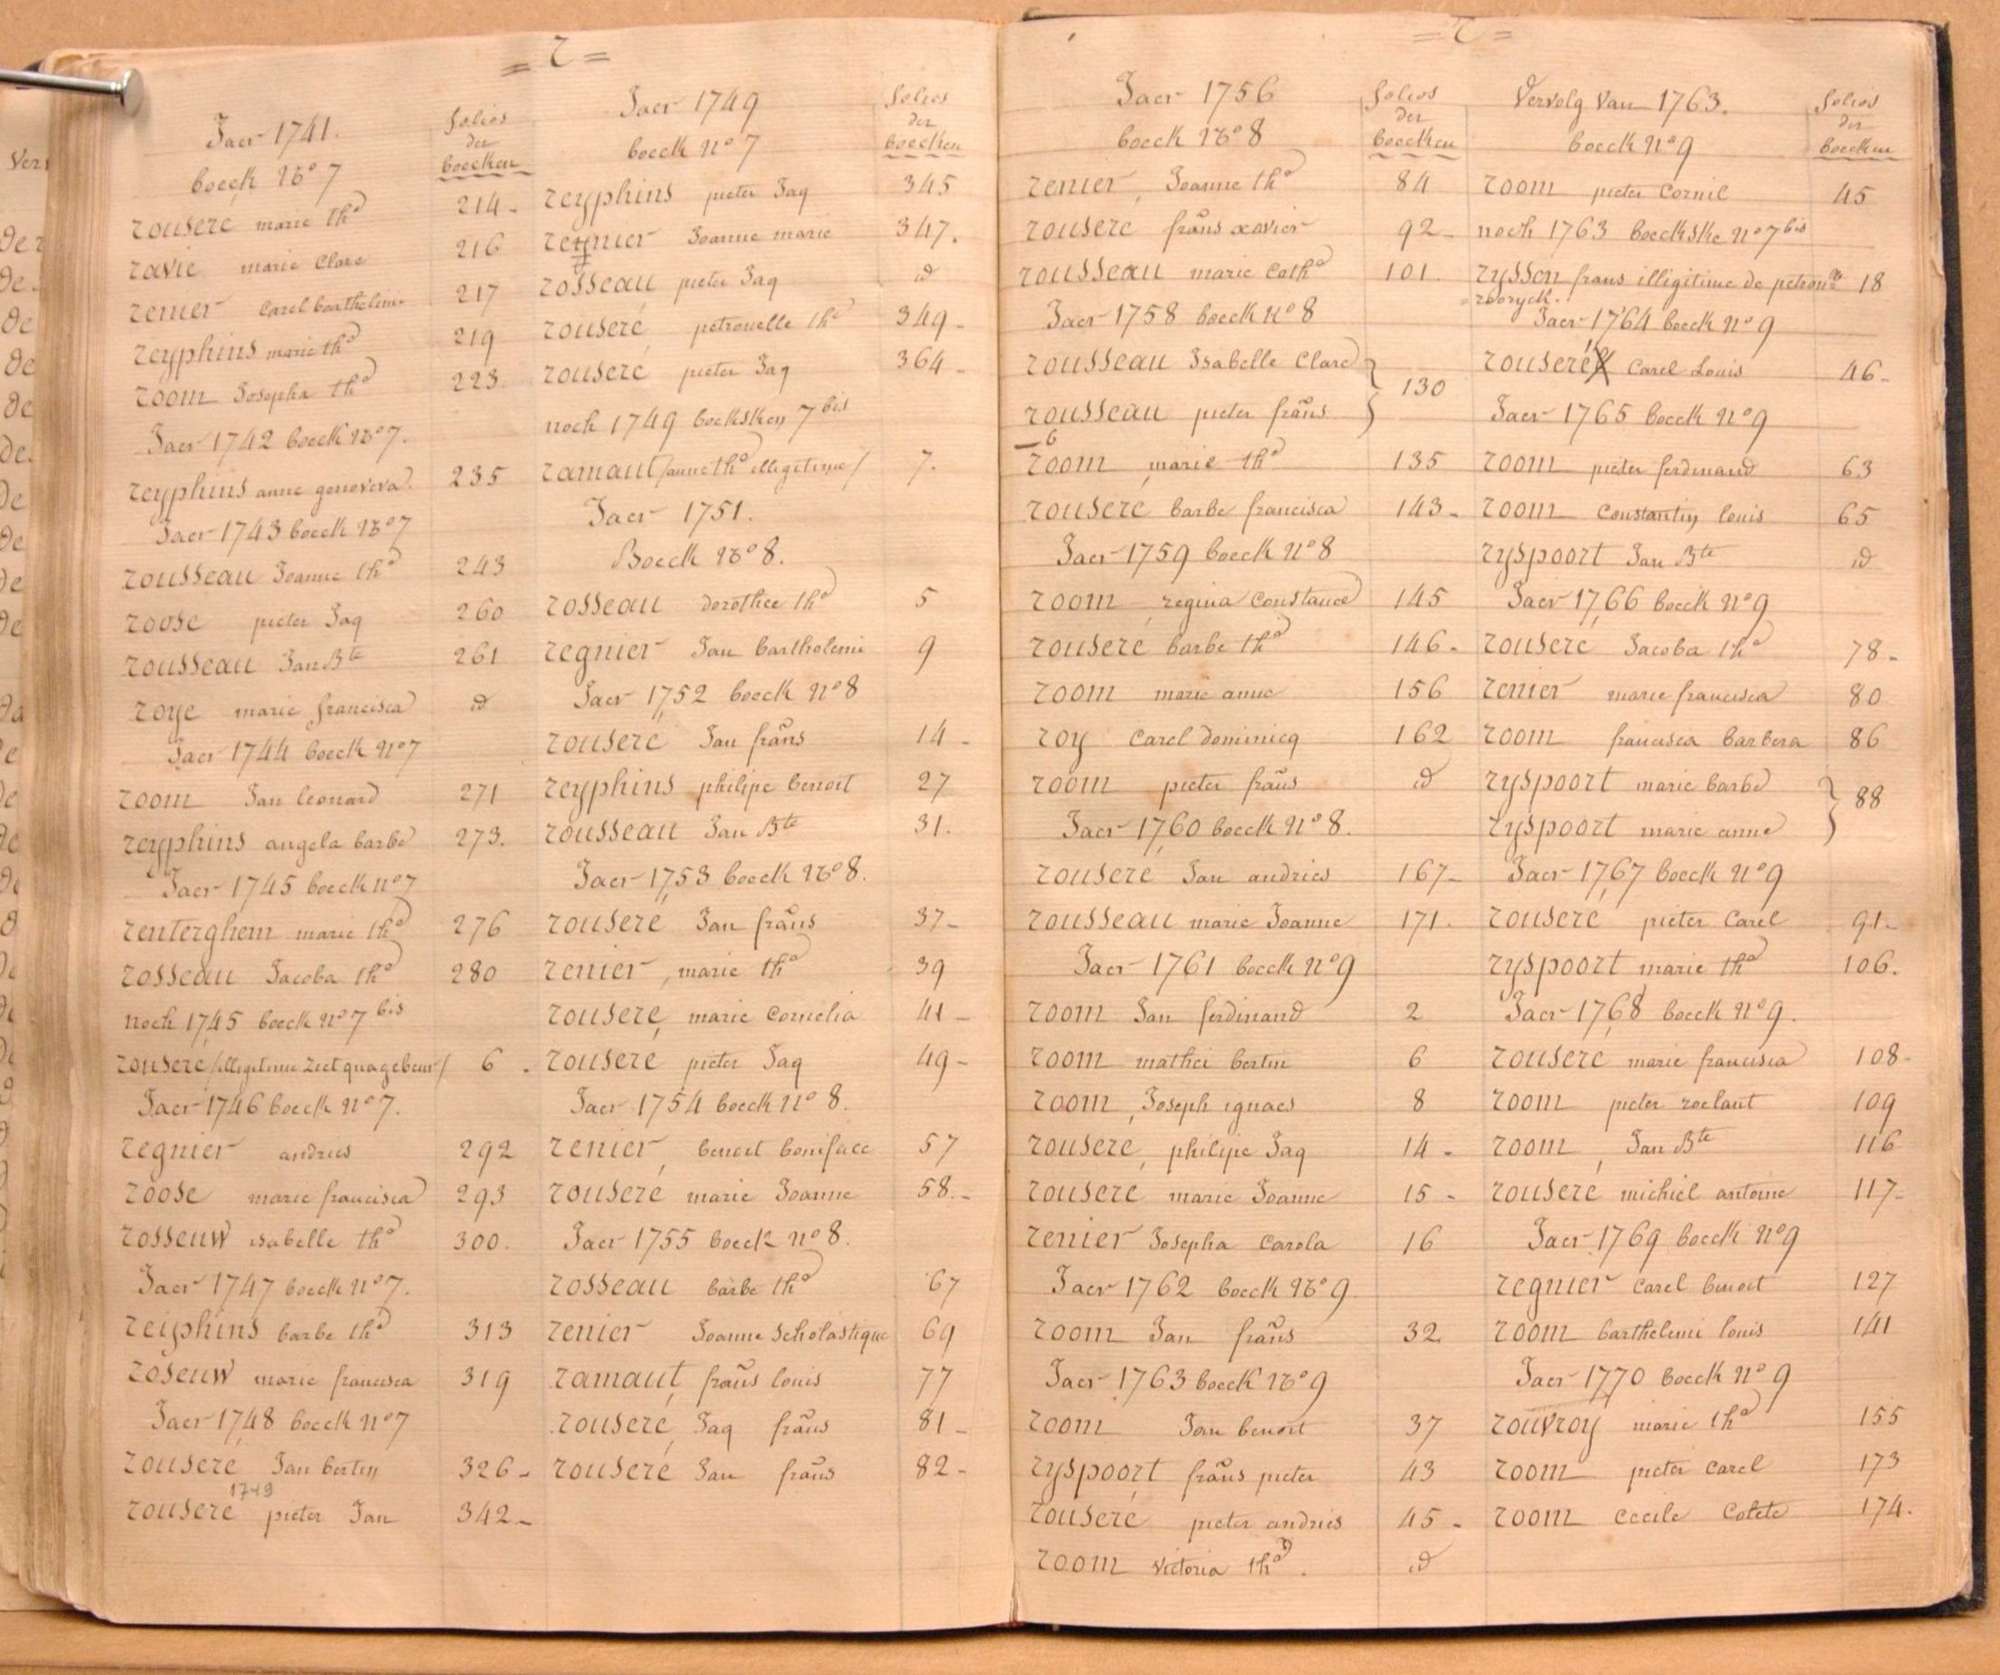 = r =
Jaer 1741.
folios der boecken
boeck No 7
rouseré marie tha 214 -
ravie marie Clare 216
renier Carel barthelemi 217
reyphins marie tha 219
room Josepha tha 223
Jaer 1742 boeck No 7.
reyphins anne genoveva 235
Jaer 1743 boeck No 7
rousseau Joanne tha 243
roose pieter Jaq 260
rousseau Jan Bte 261
roye marie francisca id
Jaer 1744 boeck No 7
room Jan leonard 271
reyphins angela barbe 273.
Jaer 1745 boeck no 7
renterghem marie tha 276
rosseau Jacoba tha 280
noch 1745 boeck No 7 bis
rouseré /illigitime Zeetquagebeur/ 6 -
Jaer 1746 boeck No 7.
regnier andries 292
roose marie francisca 293
rosseuw isabelle tha 300.
Jaer 1747 boeck No 7.
reiphins barbe tha 313
roseuw marie francisca 319
Jaer 1748 boeck No 7
rouseré Jan bertin 326 -
1749
rouseré pieter Jan 342 -
Jaer 1749
folios der boecken
boeck No 7
reyphins pieter Jaq 345
regnier Joanne marie 347.
rosseau pieter Jaq id
rouseré petronelle tha 349 -
rouseré pieter Jaq 364 -
noch 1749 boecksken 7 bis
ramaut /anne tha illegitime/ 7.
Jaer 1751.
Boeck No 8.
rosseau dorothee tha 5
regnier Jan bartholemi 9
Jaer 1752 boeck No 8
rouseré Jan frans 14 -
reyphins philipe benoit 27
rousseau Jan Bte 31.
Jaer 1753 boeck No 8.
rouseré Jan frans 37 -
renier marie tha 39
rouseré marie Cornelia 41 -
rouseré pieter Jaq 49 -
Jaer 1754 boeck No 8.
renier benoit boniface 57
rouseré marie Joanne 58. -
Jaer 1755 boeck No 8.
rosseau barbe tha 67
renier Joanne Scholastique 69
ramaut frans louis 77
rouseré Jaq frans 81 -
rouseré Jan frans 82 -
= r =
Jaer 1756
folios der boecken
boeck No 8
renier Joanne tha 84
rouseré frans xavier 92 -
rousseau marie Catha 101.
Jaer 1758 boeck No 8
rousseau Isabelle Clare } 130
rousseau pieter frans
room marie tha 135
rouseré barbe francisca 143 -
Jaer 1759 boeck No 8
room regina Constance 145
rouseré barbe tha 146 -
room marie anne 156
roy Carel dominicq 162
room pieter frans id
Jaer 1760 boeck No 8.
rouseré Jan andries 167 -
rousseau marie Joanne 171.
Jaer 1761 boeck No 9
room Jan ferdinand 2
room mathei bertin 6
room Joseph ignaes 8
rouseré philipe Jaq 14 -
rouseré marie Joanne 15 -
renier Josepha Carola 16
Jaer 1762 boeck No 9
room Jan frans 32
Jaer 1763 boeck No 9
room Jan benoit 37
ryspoort frans pieter 43
rouseré pieter andries 45 -
room victoria tha. id
Vervolg Van 1763.
folios der boecken
boeck No 9
room pieter Cornil 45
noch 1763 boeckske No 7 bis
ryssen frans illigitime de petronle 18
Jaer 1764 boeck No 9
rouseré Carel Louis 46 -
Jaer 1765 boeck No 9
room pieter ferdinand 63
room Constantin louis 65
ryspoort Jan Bte id
Jaer 1766 boeck No 9
rouseré Jacoba tha 78 -
renier marie francisca 80
room francisca barbera 86
ryspoort marie barbe } 88
ryspoort marie anne
Jaer 1767 boeck No 9
rouseré pieter Carel 91 -
ryspoort marie tha 106.
Jaer 1768 boeck No 9.
rouseré marie francisca 108 -
room pieter roelant 109
room Jan Bte 116
rouseré michiel antoine 117 -
Jaer 1769 boeck No 9
regnier Carel benoit 127
room barthelemi louis 141
Jaer 1770 boeck No 9
rouvroy marie tha 155
room pieter Carel 173
room Cecile Colete 174.